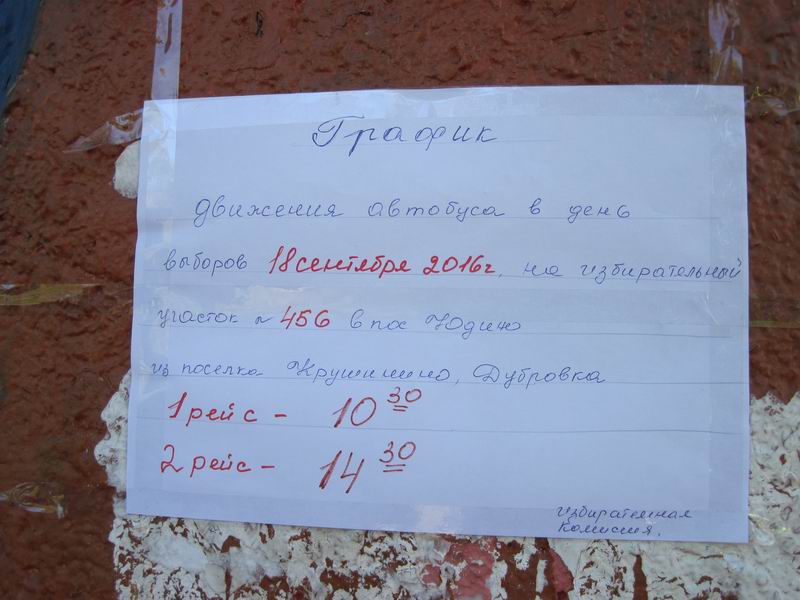 График
движения автобуса в день
выборов 18 сентября 2016г, на избирательный
участок № 456 в пос Юдино
из поселка Крушинино, Дубровка
1 рейс - 10 30
2 рейс - 14 30
избирательная
комиссия.